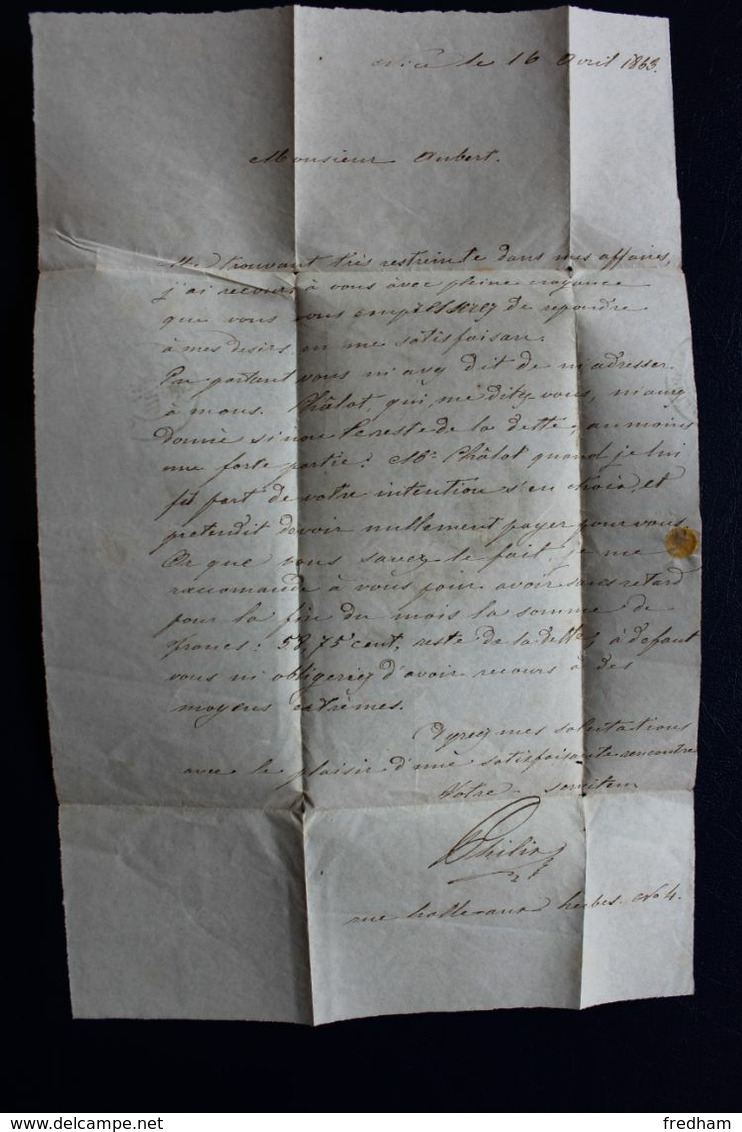 Nice le 16 Avril 1863.
Monsieur Aubert.
Me trouvant très restreinte dans mes affaires,
j'ai recours à vous avec pleine croyance
que vous vous empresserez de repondre
à mes desirs en me satisfaisan.
En partant vous m'avez dit de m'adresser
à mons. Châlot, qui, me ditez vous, m'aurez
donné si non le reste de la dette, au moins
une forte partie: Mr. Châlot quand je lui
fis part de votre intention s'en choia, et
pretendit devoir nullement payer pour vous.
Or que vous savez le fait je me
raccomande à vous pour avoir sans retard
pour la fin du mois la somme de
francs: 58,75 cent, reste de la dette, à defaut
vous m'obligeriez d'avoir recours à des
moyens extrèmes.
Agreez mes salutations
avec le plaisir d'une satisfaisante rencontre
Votre serviteur
Philip
rue halle aux herbes No 4.
fredham
www.delcampe.net